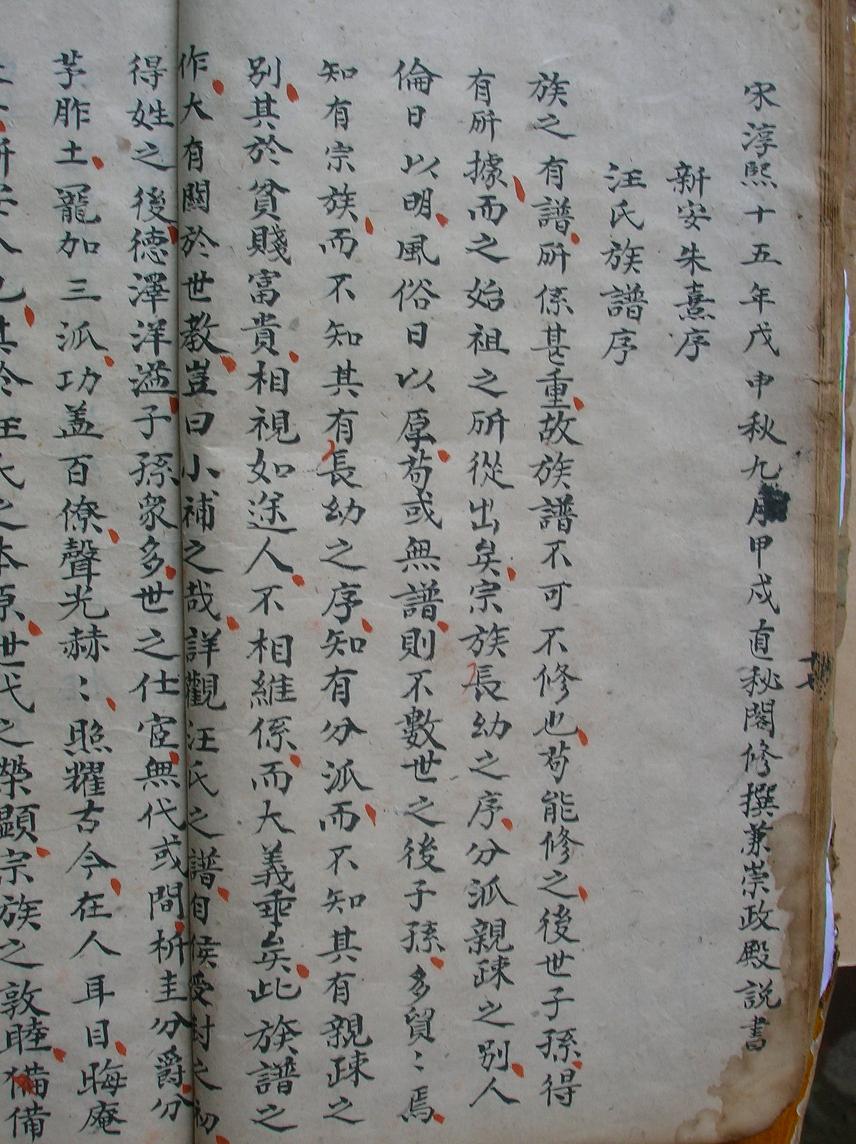 宋淳熙十五年戊申秋九月甲戌直秘閣修撰兼崇政殿説書
新安朱熹序
汪氏族譜序
族之有譜所係甚重故族譜不可不修也苟能修之後世子孫得
有所據而之始祖之所從出矣宗族長幼之序分派親疎之別人
倫日以明風俗日以厚苟或無譜則不數世之後子孫多貿〻焉
知有宗族而不知其有長幼之序知有分派而不知其有親疎之
別其於貧賤富貴相視如途人不相維係而大義乖矣此族譜之
作大有關於世教豈曰小補之哉詳觀汪氏之譜自侯受封之初
得姓之後德澤洋溢子孫衆多世之仕宦無代或間析圭分爵分
茅胙土寵加三派功盖百僚聲光赫〻照耀古今在人耳目晦庵
所安人也其於汪氏之本原世代之榮顯宗族之敦睦備備